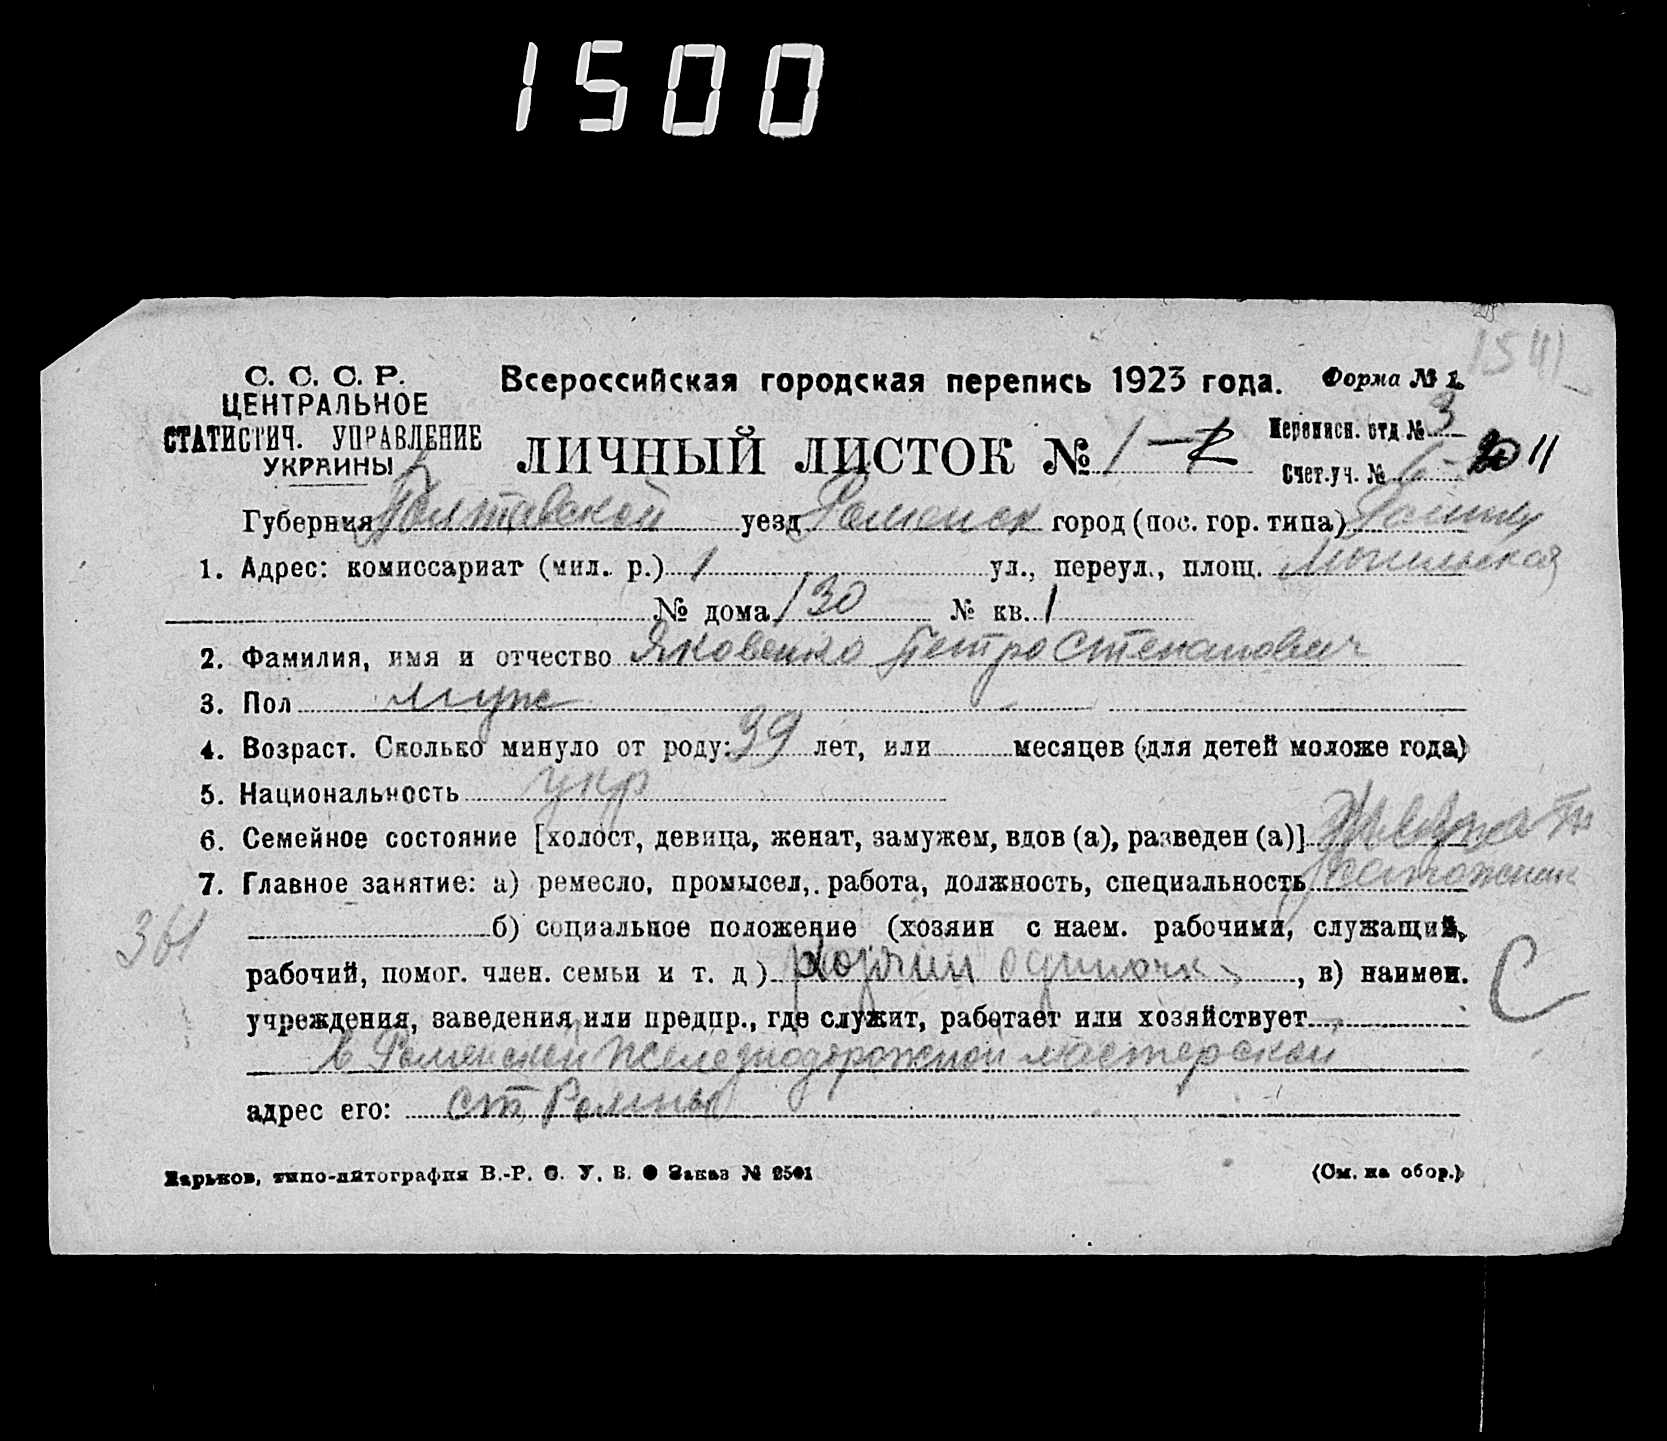 1500
1511
С. С. С. Р.
ЦЕНТРАЛЬНОЕ
СТАТИСТИЧ. УПРАВЛЕНИЕ
УКРАИНЫ
Всероссийская городская перепись 1923 года. Форма № 1.
ЛИЧНЫЙ ЛИСТОК № 1
Переписн. отд № 3
Счет.-уч. № 11
Губерния Полтавской уезд Роменск город (пос. гор. типа) Ромны
1. Адрес: комиссариат (мил. р.) 1 ул., переул., площ.
№ дома 130 № кв. 1
2. Фамилия, имя и отчество Яковенко Петро Степанович
3. Пол муж
4. Возраст. Сколько минуло от роду: 39 лет, или месяцев (для детей моложе года)
5. Национальность укр
6. Семейное состояние [холост, девица, женат, замужем, вдов (а), разведен (а)]
7. Главное занятие: а) ремесло, промысел, работа, должность, специальность
361
б) социальное положение (хозяин с наем. рабочими, служащий,
рабочий, помог. член. семьи и т. д.) , в) наимен.
С
учреждения, заведения или предпр., где служит, работает или хозяйствует
в Роменской железнодорожной мастерской
адрес его: ст Ромны
Харьков, типо-литография В.-Р. С. У. В. Заказ № 2501 (См. на обор.)